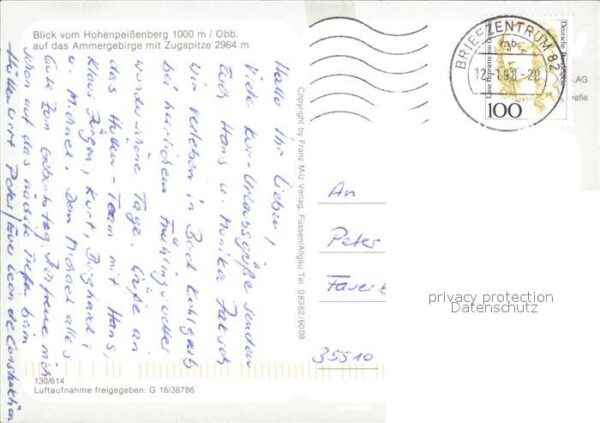 Blick vom Hohenpeißenberg 1000 m / Obb.
auf das Ammergebirge mit Zugspitze 2964 m
Hallo Ihr Lieben!
Viele Kur-Urlaubsgrüße senden
Euch Hans u. Monika
Wir verleben in Bad Kohlgrub
bei herrlichem Frühlingswetter
wunderschöne Tage. Grüße an
das Hütten-Team mit Hans,
Klaus, Jürgen, Kurt, Burghard
u. Michael. Dem Michael alles
Gute zum Geburtstag. Ich freue mich
schon auf das nächste Treffen beim
Hüttenwirt Peter
130/614
Luftaufnahme freigegeben: G 16/38786
Copyright by Franz Milz Verlag, Füssen/Allgäu Tel. 08362/6008
BRIEFZENTRUM 82
mb
Deutsche Bundespost
100
AG
afie
An
Peter
35510
privacy protection
Datenschutz